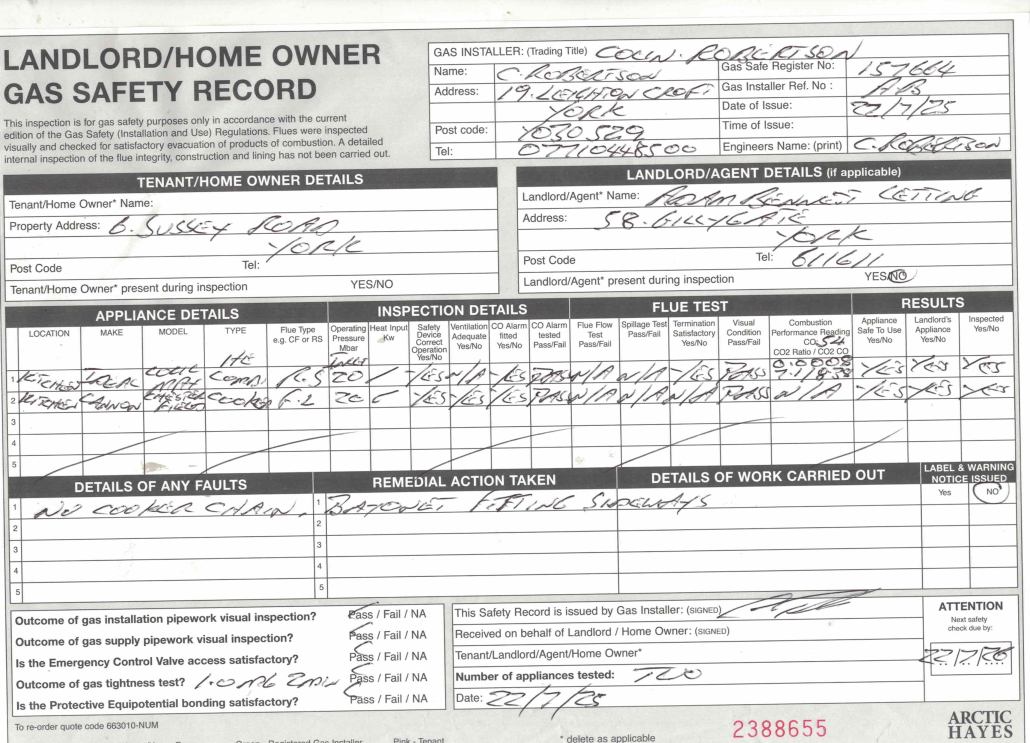 LANDLORD/HOME OWNER
GAS SAFETY RECORD
This inspection is for gas safety purposes only in accordance with the current
edition of the Gas Safety (Installation and Use) Regulations. Flues were inspected
visually and checked for satisfactory evacuation of products of combustion. A detailed
internal inspection of the flue integrity, construction and lining has not been carried out.
GAS INSTALLER: (Trading Title) COLIN. ROBERTSON
Name: C. ROBERTSON Gas Safe Register No: 157664
Address: 19. LEIGHTON CROFT Gas Installer Ref. No :
YORK Date of Issue: 22/7/25
Post code: Time of Issue:
Tel: 07710448500 Engineers Name: (print) C. ROBERTSON
TENANT/HOME OWNER DETAILS
Tenant/Home Owner* Name:
Property Address: 6. SUSSEX ROAD
YORK
Post Code Tel:
Tenant/Home Owner* present during inspection YES/NO
LANDLORD/AGENT DETAILS (if applicable)
Landlord/Agent* Name: ADAM BENNETT LETTING
Address: 58. GILLYGATE
YORK
Post Code Tel: 611611
Landlord/Agent* present during inspection YES/NO
APPLIANCE DETAILS INSPECTION DETAILS FLUE TEST RESULTS
LOCATION MAKE MODEL TYPE Flue Type e.g. CF or RS Operating Pressure Mbar Heat Input Kw Safety Device Correct Operation Yes/No Ventilation Adequate Yes/No CO Alarm fitted Yes/No CO Alarm tested Pass/Fail Flue Flow Test Pass/Fail Spillage Test Pass/Fail Termination Satisfactory Yes/No Visual Condition Pass/Fail Combustion Performance Reading CO2 Ratio / CO2 CO Appliance Safe To Use Yes/No Landlord's Appliance Yes/No Inspected Yes/No
1 KITCHEN IDEAL LOGIC HE COMBI R.S INLET 20 / YES N/A YES PASS N/A N/A YES PASS 0.0008 YES YES YES
2 KITCHEN CANNON CHESTERFIELD COOKER F.L 20 YES YES YES PASS N/A N/A N/A PASS N/A YES YES YES
3
4
5
DETAILS OF ANY FAULTS REMEDIAL ACTION TAKEN DETAILS OF WORK CARRIED OUT LABEL & WARNING NOTICE ISSUED
Yes NO
1 NO COOKER CHAIN. 1 BAYONET FITTING SIDEWAYS
2 2
3 3
4 4
5 5
Outcome of gas installation pipework visual inspection? Pass / Fail / NA
Outcome of gas supply pipework visual inspection? Pass / Fail / NA
Is the Emergency Control Valve access satisfactory? Pass / Fail / NA
Outcome of gas tightness test? 1.0 MB 2 MIN Pass / Fail / NA
Is the Protective Equipotential bonding satisfactory? Pass / Fail / NA
This Safety Record is issued by Gas Installer: (SIGNED)
Received on behalf of Landlord / Home Owner: (SIGNED)
Tenant/Landlord/Agent/Home Owner*
Number of appliances tested: TWO
Date: 22/7/25
ATTENTION
Next safety
check due by:
22/7/26
To re-order quote code 663010-NUM
Pink - Tenant
* delete as applicable
2388655
ARCTIC
HAYES